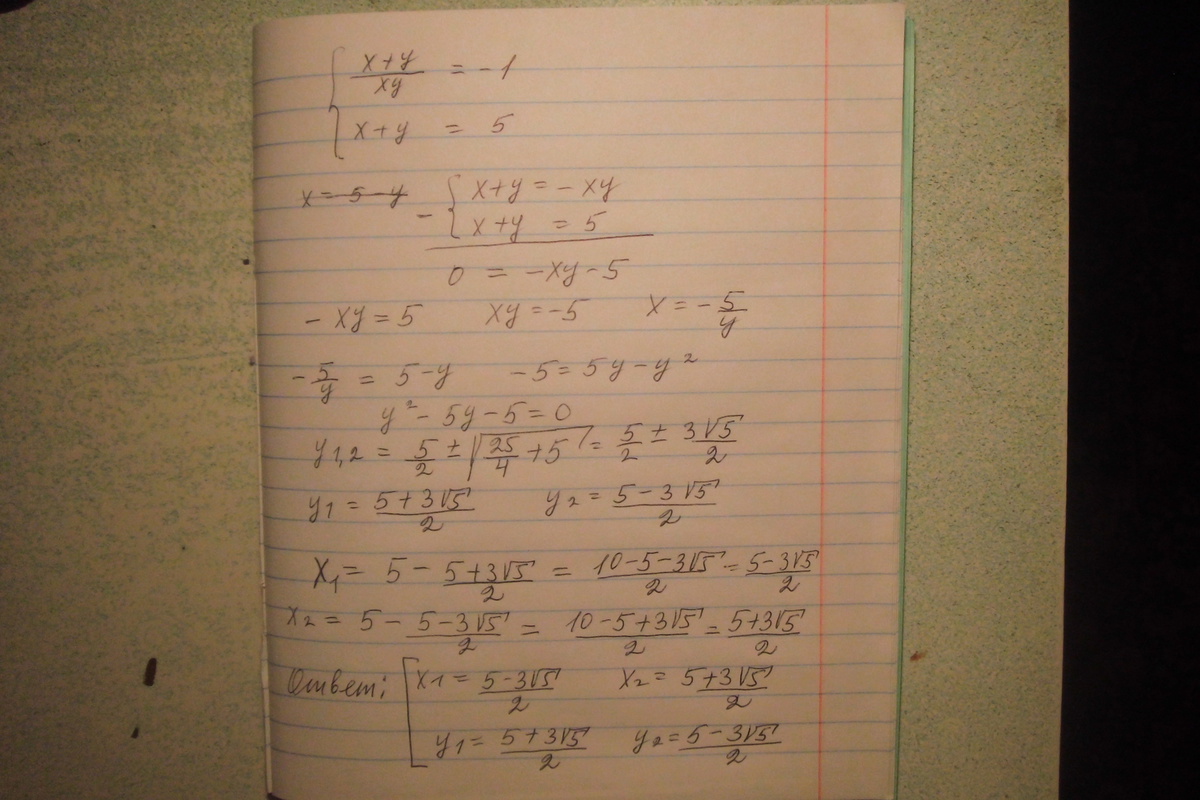 { (x+y)/(xy) = -1
x+y = 5
x = 5 - y - { x+y = - xy
x+y = 5
0 = -xy - 5
- xy = 5 xy = -5 x = - 5/y
- 5/y = 5 - y -5 = 5y - y²
y² - 5y - 5 = 0
y1,2 = 5/2 ± √(25/4 + 5) = 5/2 ± 3√5/2
y1 = (5+3√5)/2 y2 = (5-3√5)/2
X1 = 5 - (5+3√5)/2 = (10-5-3√5)/2 = (5-3√5)/2
x2 = 5 - (5-3√5)/2 = (10-5+3√5)/2 = (5+3√5)/2
Ответ: [ x1 = (5-3√5)/2 x2 = (5+3√5)/2
y1 = (5+3√5)/2 y2 = (5-3√5)/2